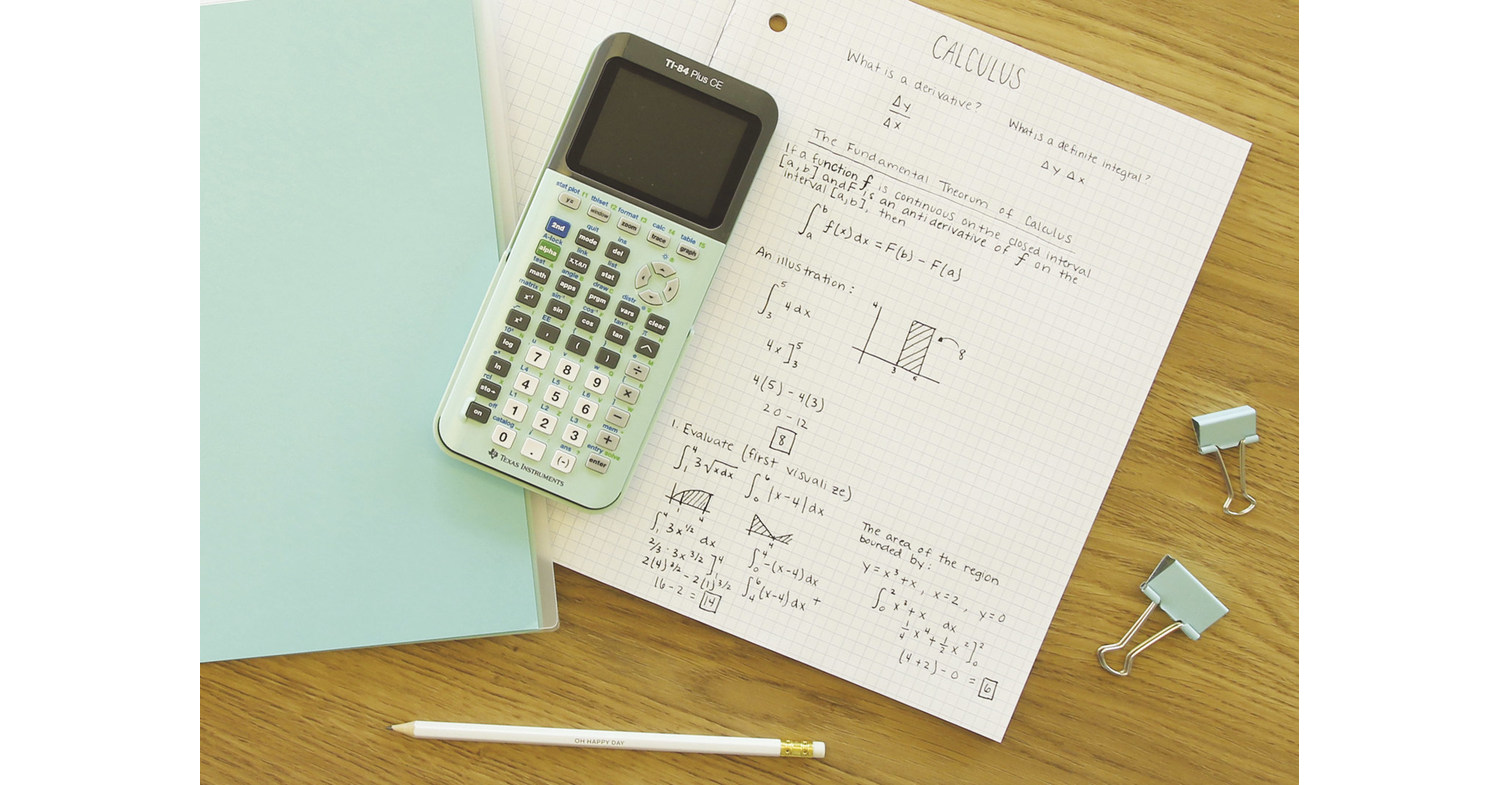 TI-84 Plus CE
stat plot F1 tblset F2 format F3 calc F4 table F5
y= window zoom trace graph
quit ins
2nd mode del
A-lock link list
alpha X,T,θ,n stat
test A angle B draw C distr
math apps prgm vars clear
matrix D sin⁻¹ E cos⁻¹ F tan⁻¹ G π H
x⁻¹ sin cos tan ^
EE J
x² , ( ) ÷
10ˣ N u O v P w Q
log 7 8 9 ×
eˣ L4 L5 L6
ln 4 5 6 −
rcl L1 L2 L3 mem
sto→ 1 2 3 +
off catalog ans entry solve
on 0 . (-) enter
TEXAS INSTRUMENTS
CALCULUS
What is a derivative?
Δy
Δx
What is a definite integral?
Δy Δx
The Fundamental Theorum of Calculus
If a function f is continuous on the closed interval
[a,b] and F is an antiderivative of f on the
interval [a,b], then
∫ₐᵇ f(x)dx = F(b) − F(a)
An illustration:
∫₃⁵ 4dx
4
8
3
4x]₃⁵
4(5) − 4(3)
20 − 12
8
1. Evaluate (first visualize)
∫₁⁴ 3√xdx
1 4
∫₁⁴ 3x^1/2 dx
2/3 · 3x^3/2]₁⁴
2(4)^3/2 − 2(1)^3/2
16 − 2 = 14
∫₀⁶ |x−4|dx
4
∫₀⁴ −(x−4)dx
∫₄⁶ (x−4)dx +
The area of the region
bounded by:
y=x³+x, x=2, y=0
∫₀² x³+x dx
1/4 x⁴ + 1/2 x²]₀²
(4+2) − 0 = 6
OH HAPPY DAY